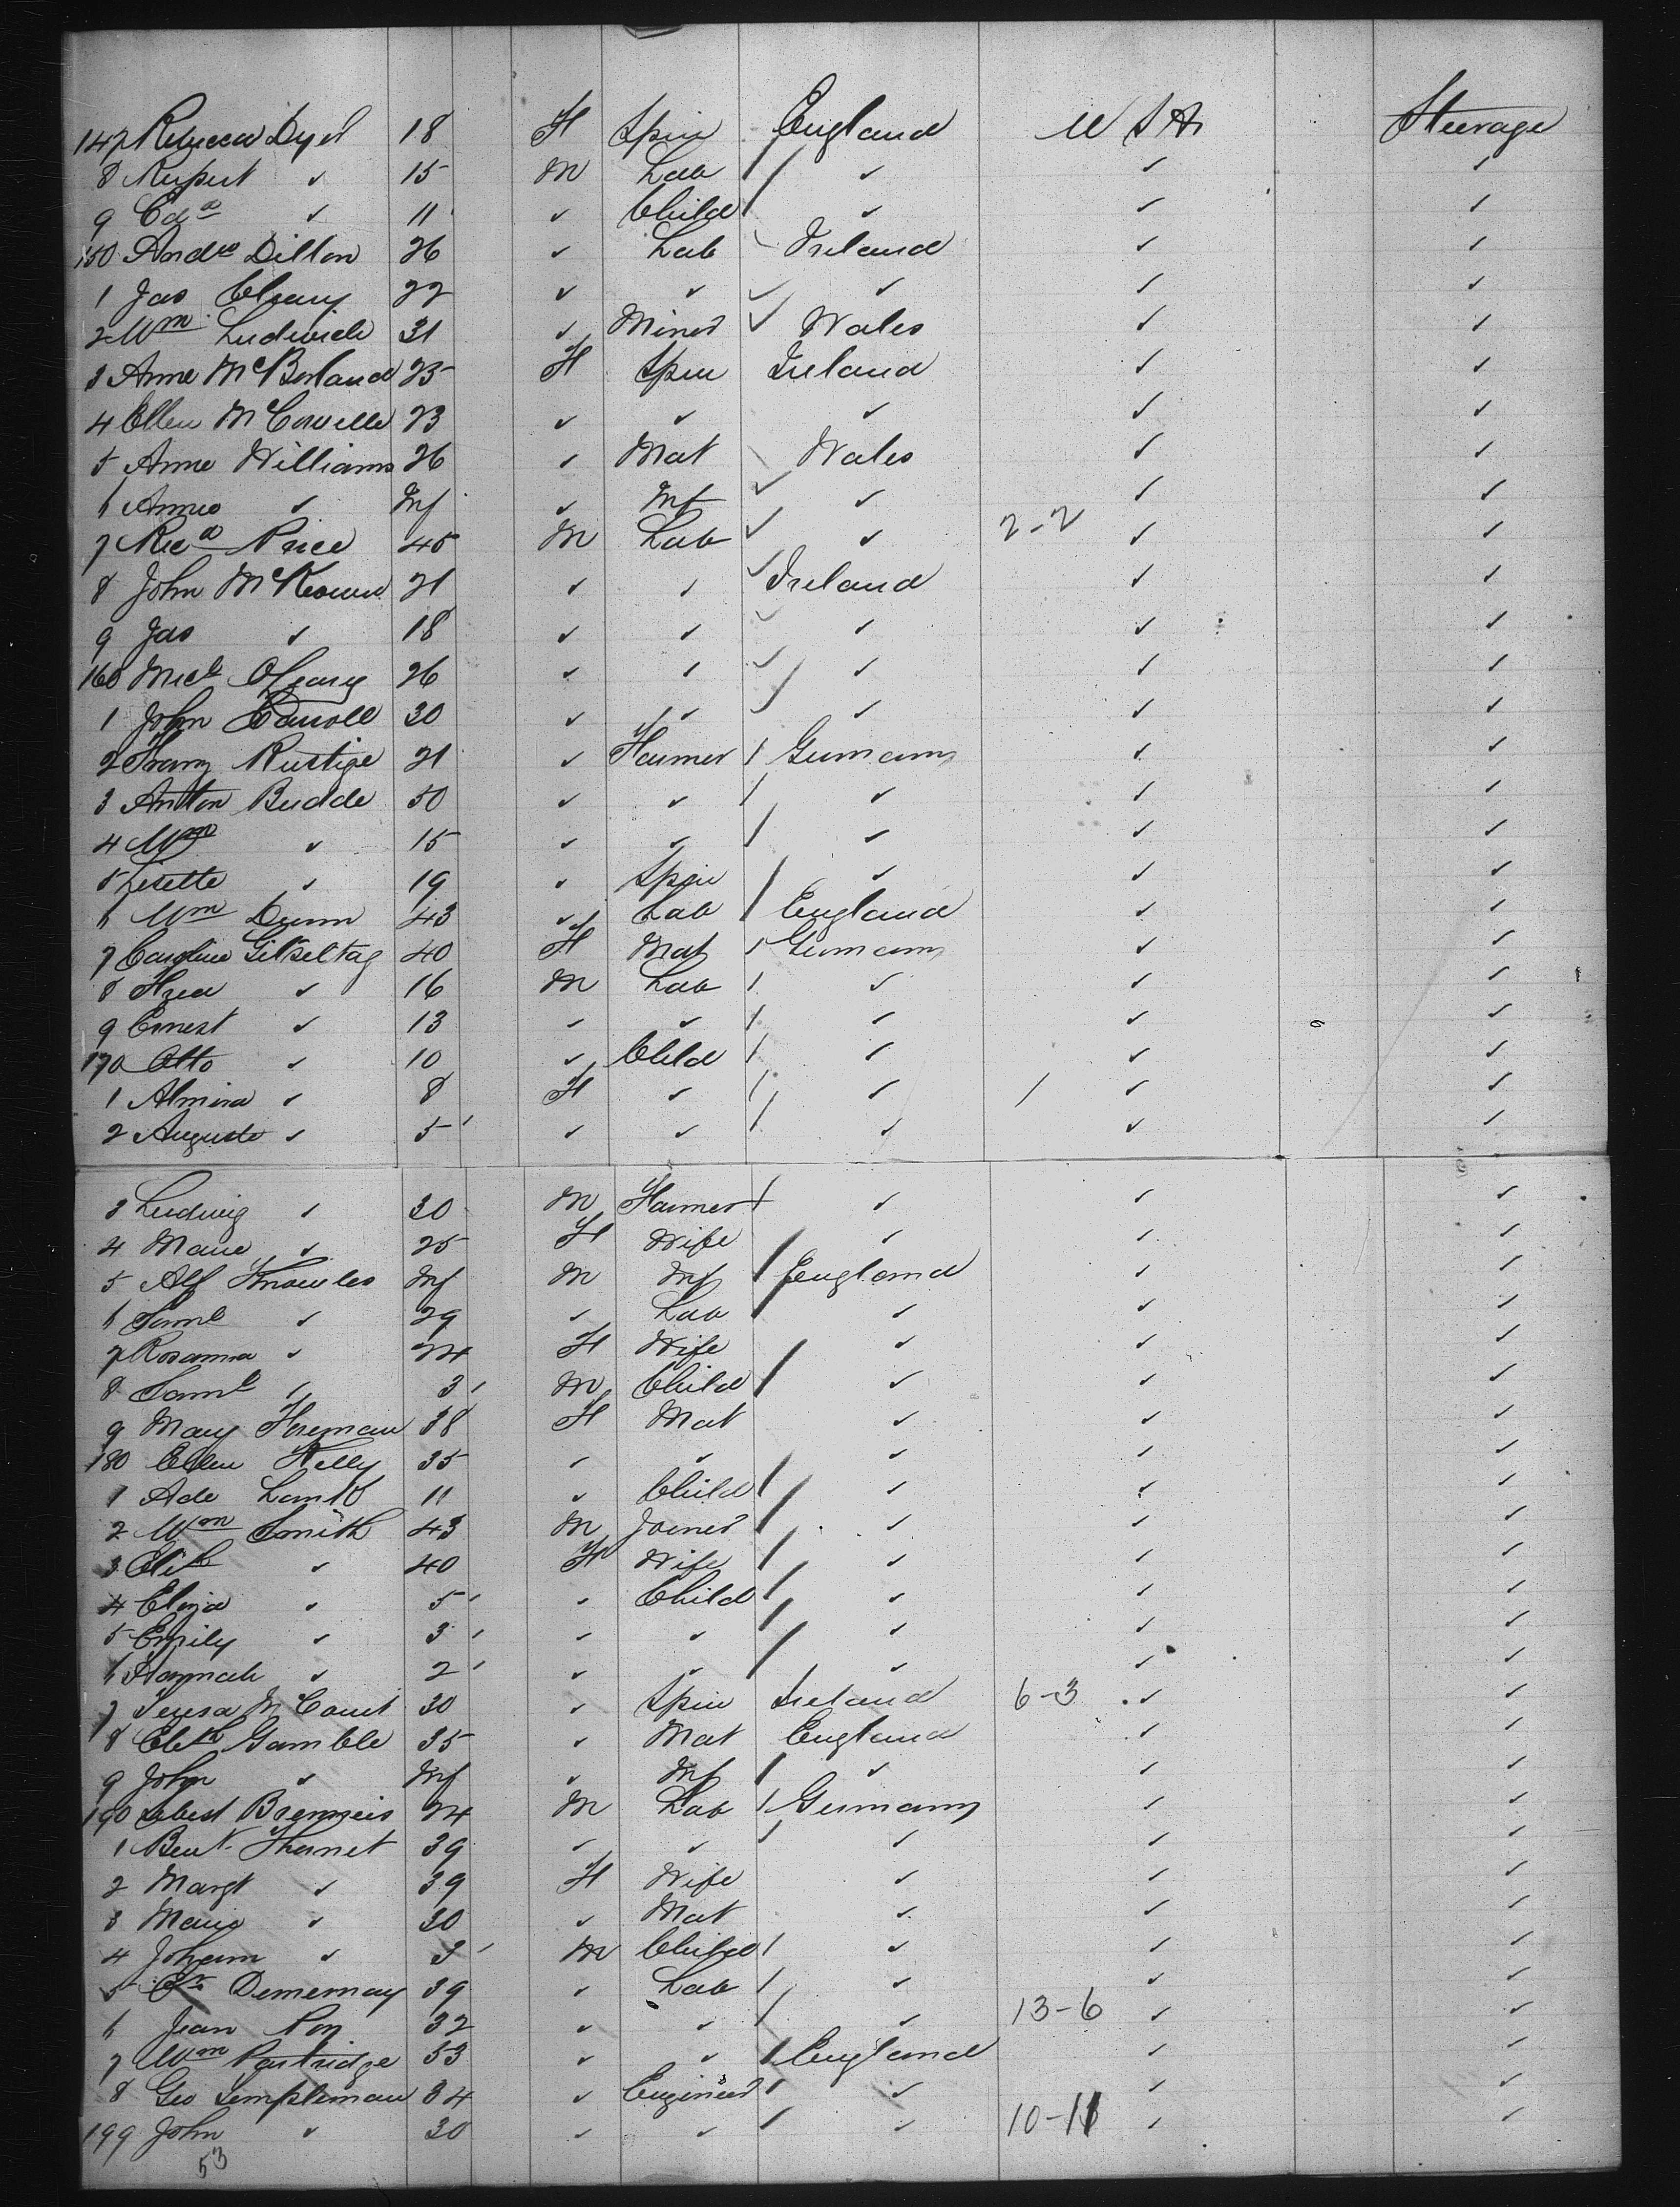 147 Rebecca Dyer 18 F Spin England U S A Steerage
8 Rupert ✓ 15 M Lab ✓ ✓ ✓
9 Edwd ✓ 11 ✓ Child ✓ ✓ ✓
150 Andw Dillon 26 ✓ Lab Ireland ✓ ✓
1 Jas Cleary 22 ✓ ✓ ✓ ✓ ✓
2 Wm Ludwick 31 ✓ Miner Wales ✓ ✓
3 Anne McBorland 25 F Spin Ireland ✓ ✓
4 Ellen McConville 23 ✓ ✓ ✓ ✓ ✓
5 Anne Williams 26 ✓ Mat Wales ✓ ✓
6 Annie ✓ Inf ✓ Inf ✓ ✓ ✓
7 Ricd Price 45 M Lab ✓ 2-2 ✓ ✓
8 John McKeown 21 ✓ ✓ Ireland ✓ ✓
9 Jas ✓ 18 ✓ ✓ ✓ ✓ ✓
160 Micl OLeary 26 ✓ ✓ ✓ ✓ ✓
1 John Carroll 30 ✓ ✓ ✓ ✓ ✓
2 Franz Rustige 21 ✓ Farmer Germany ✓ ✓
3 Anton Budde 50 ✓ ✓ ✓ ✓ ✓
4 Wm ✓ 15 ✓ ✓ ✓ ✓ ✓
5 Lisette ✓ 19 ✓ Spin ✓ ✓ ✓
6 Wm Dunn 43 ✓ Lab England ✓ ✓
7 Caroline 40 F Mat Germany ✓ ✓
8 Fred ✓ 16 M Lab ✓ ✓ ✓
9 Ernest ✓ 13 ✓ ✓ ✓ ✓ ✓
170 Otto ✓ 10 ✓ Child ✓ ✓ ✓
1 Almira ✓ 8 F ✓ ✓ ✓ ✓
2 Auguste ✓ 5 ✓ ✓ ✓ ✓ ✓
3 Ludwig ✓ 30 M Farmer ✓ ✓ ✓
4 Marie ✓ 25 F Wife ✓ ✓ ✓
5 Alf Knowles Inf M Inf England ✓ ✓
6 Saml ✓ 29 ✓ Lab ✓ ✓ ✓
7 Rosanna ✓ 24 F Wife ✓ ✓ ✓
8 Saml ✓ 3 M Child ✓ ✓ ✓
9 Mary Foreman 38 F Mat ✓ ✓ ✓
180 Ellen Kelly 35 ✓ ✓ ✓ ✓ ✓
1 Ade Lamb 11 ✓ Child ✓ ✓ ✓
2 Wm Smith 43 M Joiner ✓ ✓ ✓
3 Elizh ✓ 40 F Wife ✓ ✓ ✓
4 Eliza ✓ 5 ✓ Child ✓ ✓ ✓
5 Emily ✓ 3 ✓ ✓ ✓ ✓ ✓
6 Hannah ✓ 2 ✓ ✓ ✓ ✓ ✓
7 Teresa McCourt 30 ✓ Spin Ireland 6-3 ✓ ✓
8 Elith Gamble 35 ✓ Mat England ✓ ✓
9 John ✓ Inf ✓ Inf ✓ ✓ ✓
190 24 M Lab Germany ✓ ✓
1 39 ✓ ✓ ✓ ✓ ✓
2 Margt ✓ 39 F Wife ✓ ✓ ✓
3 Marie ✓ 30 ✓ Mat ✓ ✓ ✓
4 Johann ✓ 3 M Child ✓ ✓ ✓
5 39 ✓ Lab ✓ ✓ ✓
6 Jean Roy 32 ✓ ✓ ✓ 13-6 ✓ ✓
7 Wm Partridge 53 ✓ ✓ England ✓ ✓
8 Geo Templeman 34 ✓ Engineer ✓ ✓ ✓
199 John ✓ 30 ✓ ✓ ✓ 10-11 ✓ ✓
53